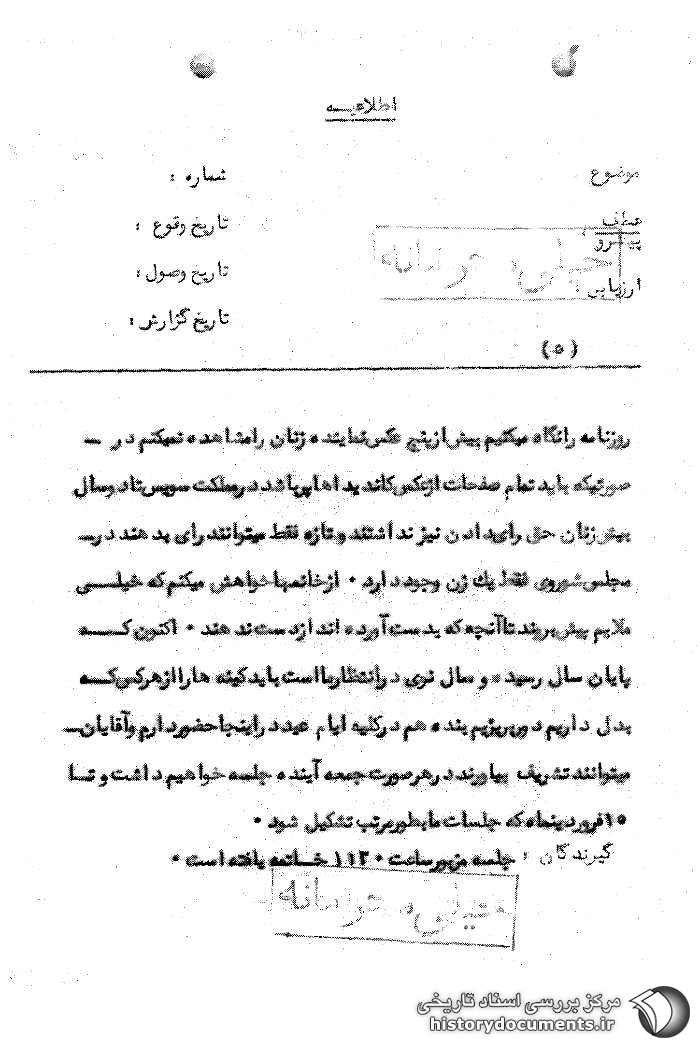 اطلاعیه
موضوع
شماره :
عطف
پیرو
تاریخ وقوع :
تاریخ وصول :
ارزیابی :
تاریخ گزارش :
خیلی محرمانه
(۵)
روزنامه رانگاه میکنیم بیش از پنج عکس نماینده زنان را مشاهده نمیکنم در –
صورتیکه باید تمام صفحات از عکس کاندیداها پر باشد در مملکت سویس تا دو سال
پیش زنان حق رای دادن نیز نداشتند و تازه فقط میتوانند رای بدهند در –
مجلس شوروی فقط یک زن وجود دارد . از خانمها خواهش میکنم که خیلی
ملایم پیش بروند تا آنچه که بدست آورده اند از دست ندهند . اکنون که
پایان سال رسیده و سال نوی در انتظار ما است باید کینه ها را از هر کس که
بدل داریم دور بریزیم بنده هم در کلیه ایام عید در اینجا حضور دارم و آقایان –
میتوانند تشریف بیاورند در هر صورت جمعه آینده جلسه خواهیم داشت و تا
۱۵ فروردینماه که جلسات ما بطور مرتب تشکیل شود .
گیرندگان :
جلسه مزبور ساعت ۱۱۳۰ خاتمه یافته است .
خیلی محرمانه
مرکز بررسی اسناد تاریخی
historydocuments.ir